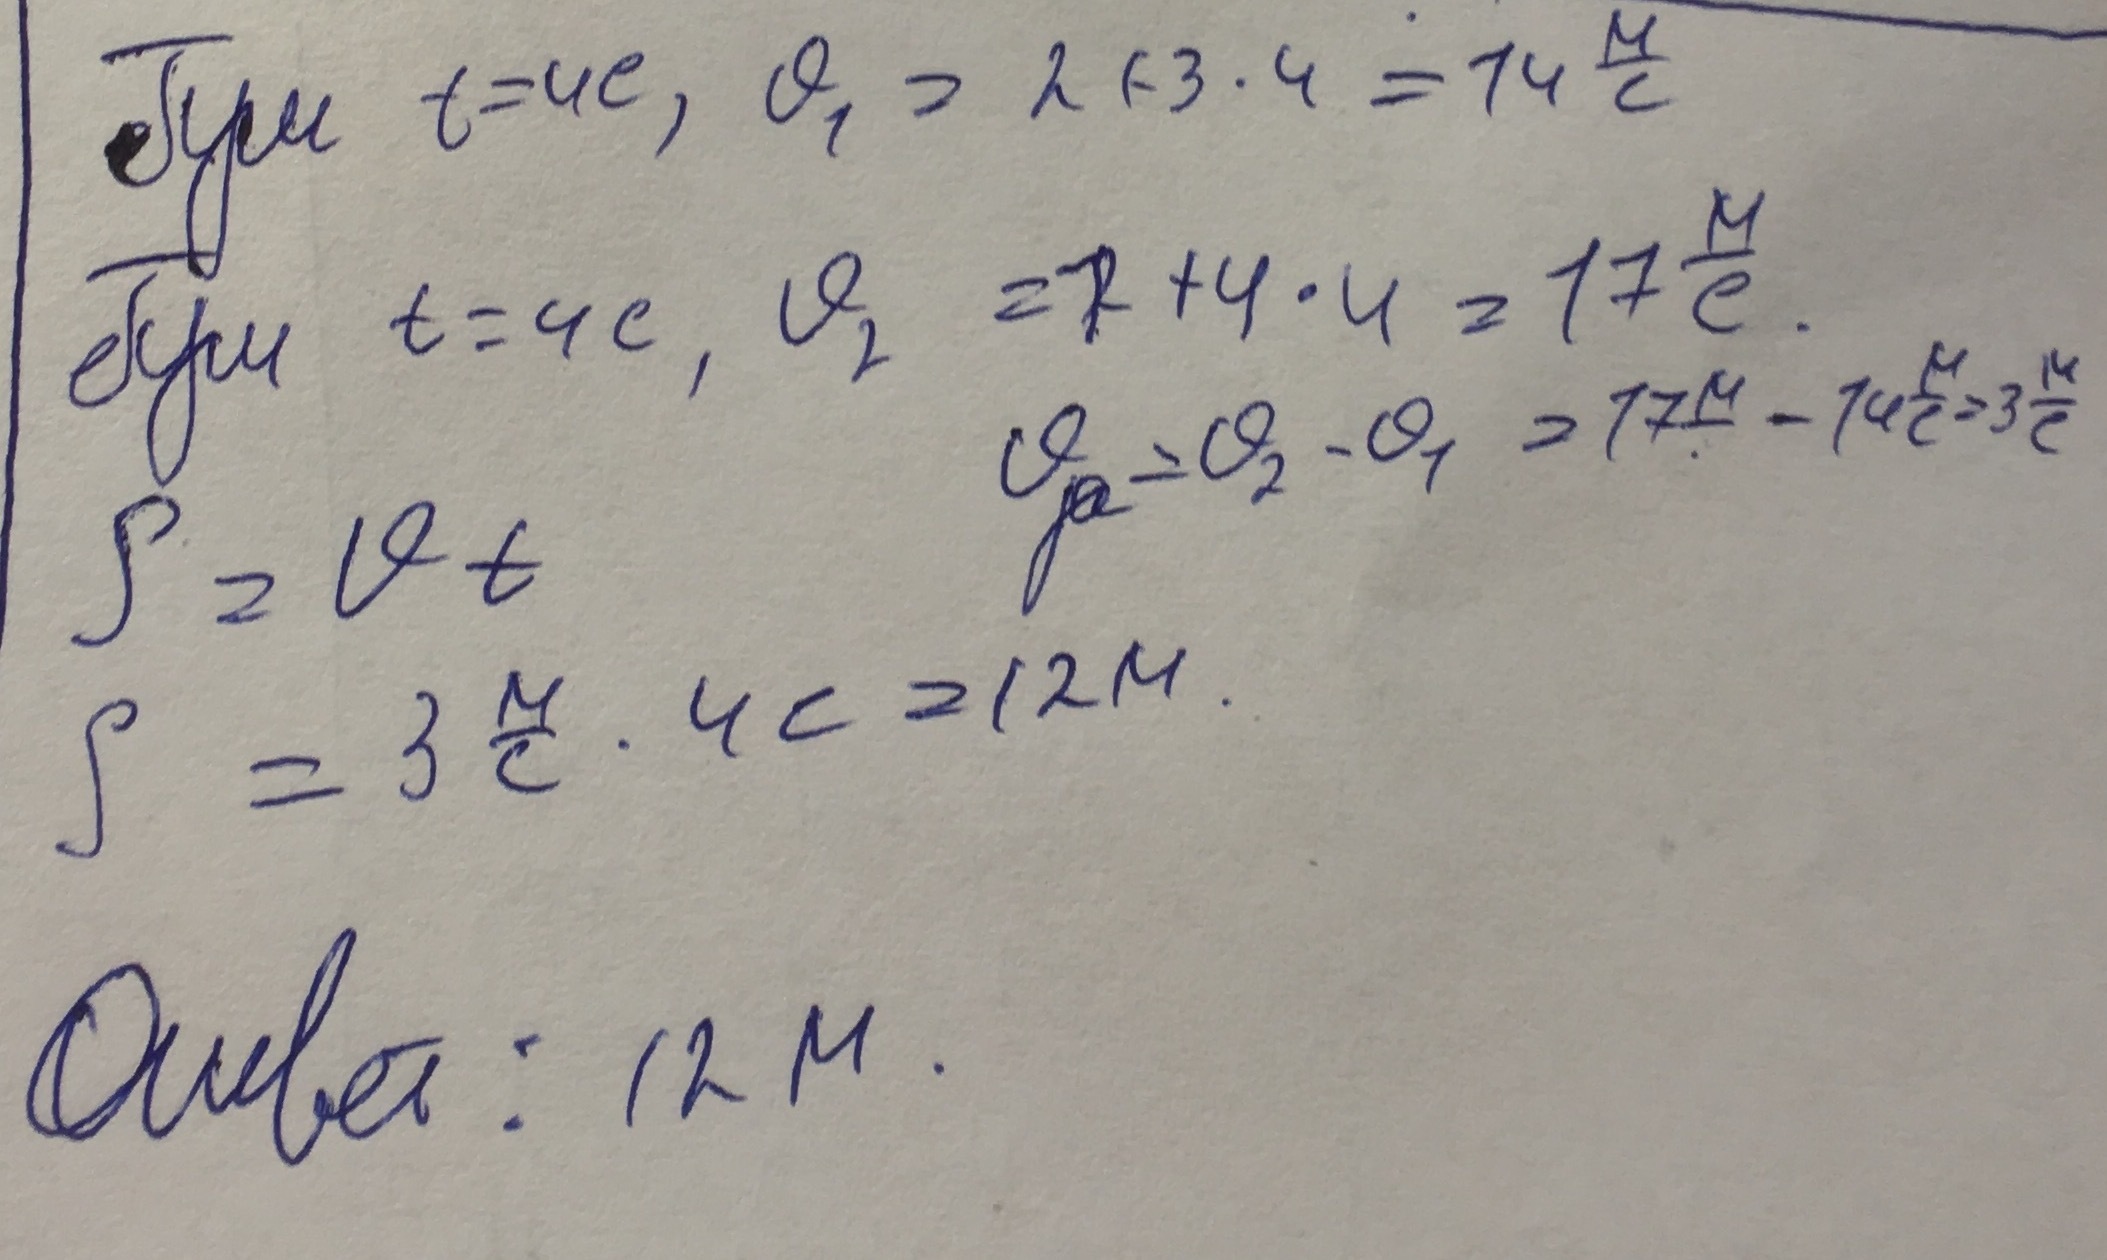 При t=4с, υ₁ = 2+3·4 = 14 м/с
При t=4с, υ₂ = 1+4·4 = 17 м/с.
υ = υ₂ - υ₁ = 17 м - 14 м/с = 3 м/с
S = υt
S = 3 м/с · 4с = 12м.
Ответ: 12 м.